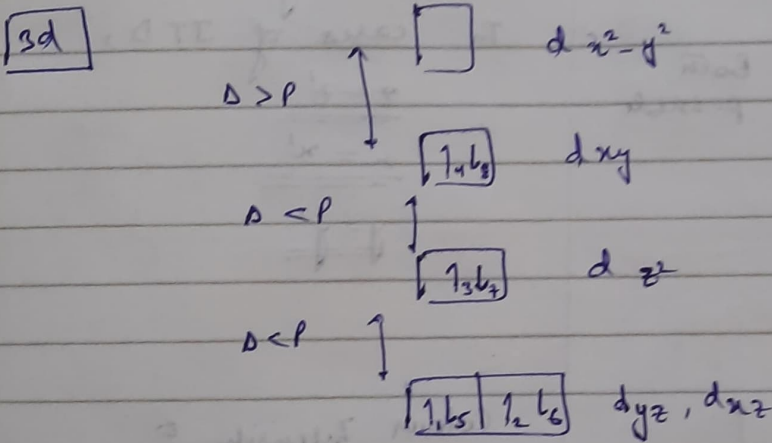 3d
d x²-y²
Δ > P
1₄ ⇂₈ d xy
Δ < P
1₃ ⇂₇ d z²
Δ < P
1₁ ⇂₅ 1₂ ⇂₆ dyz, dxz